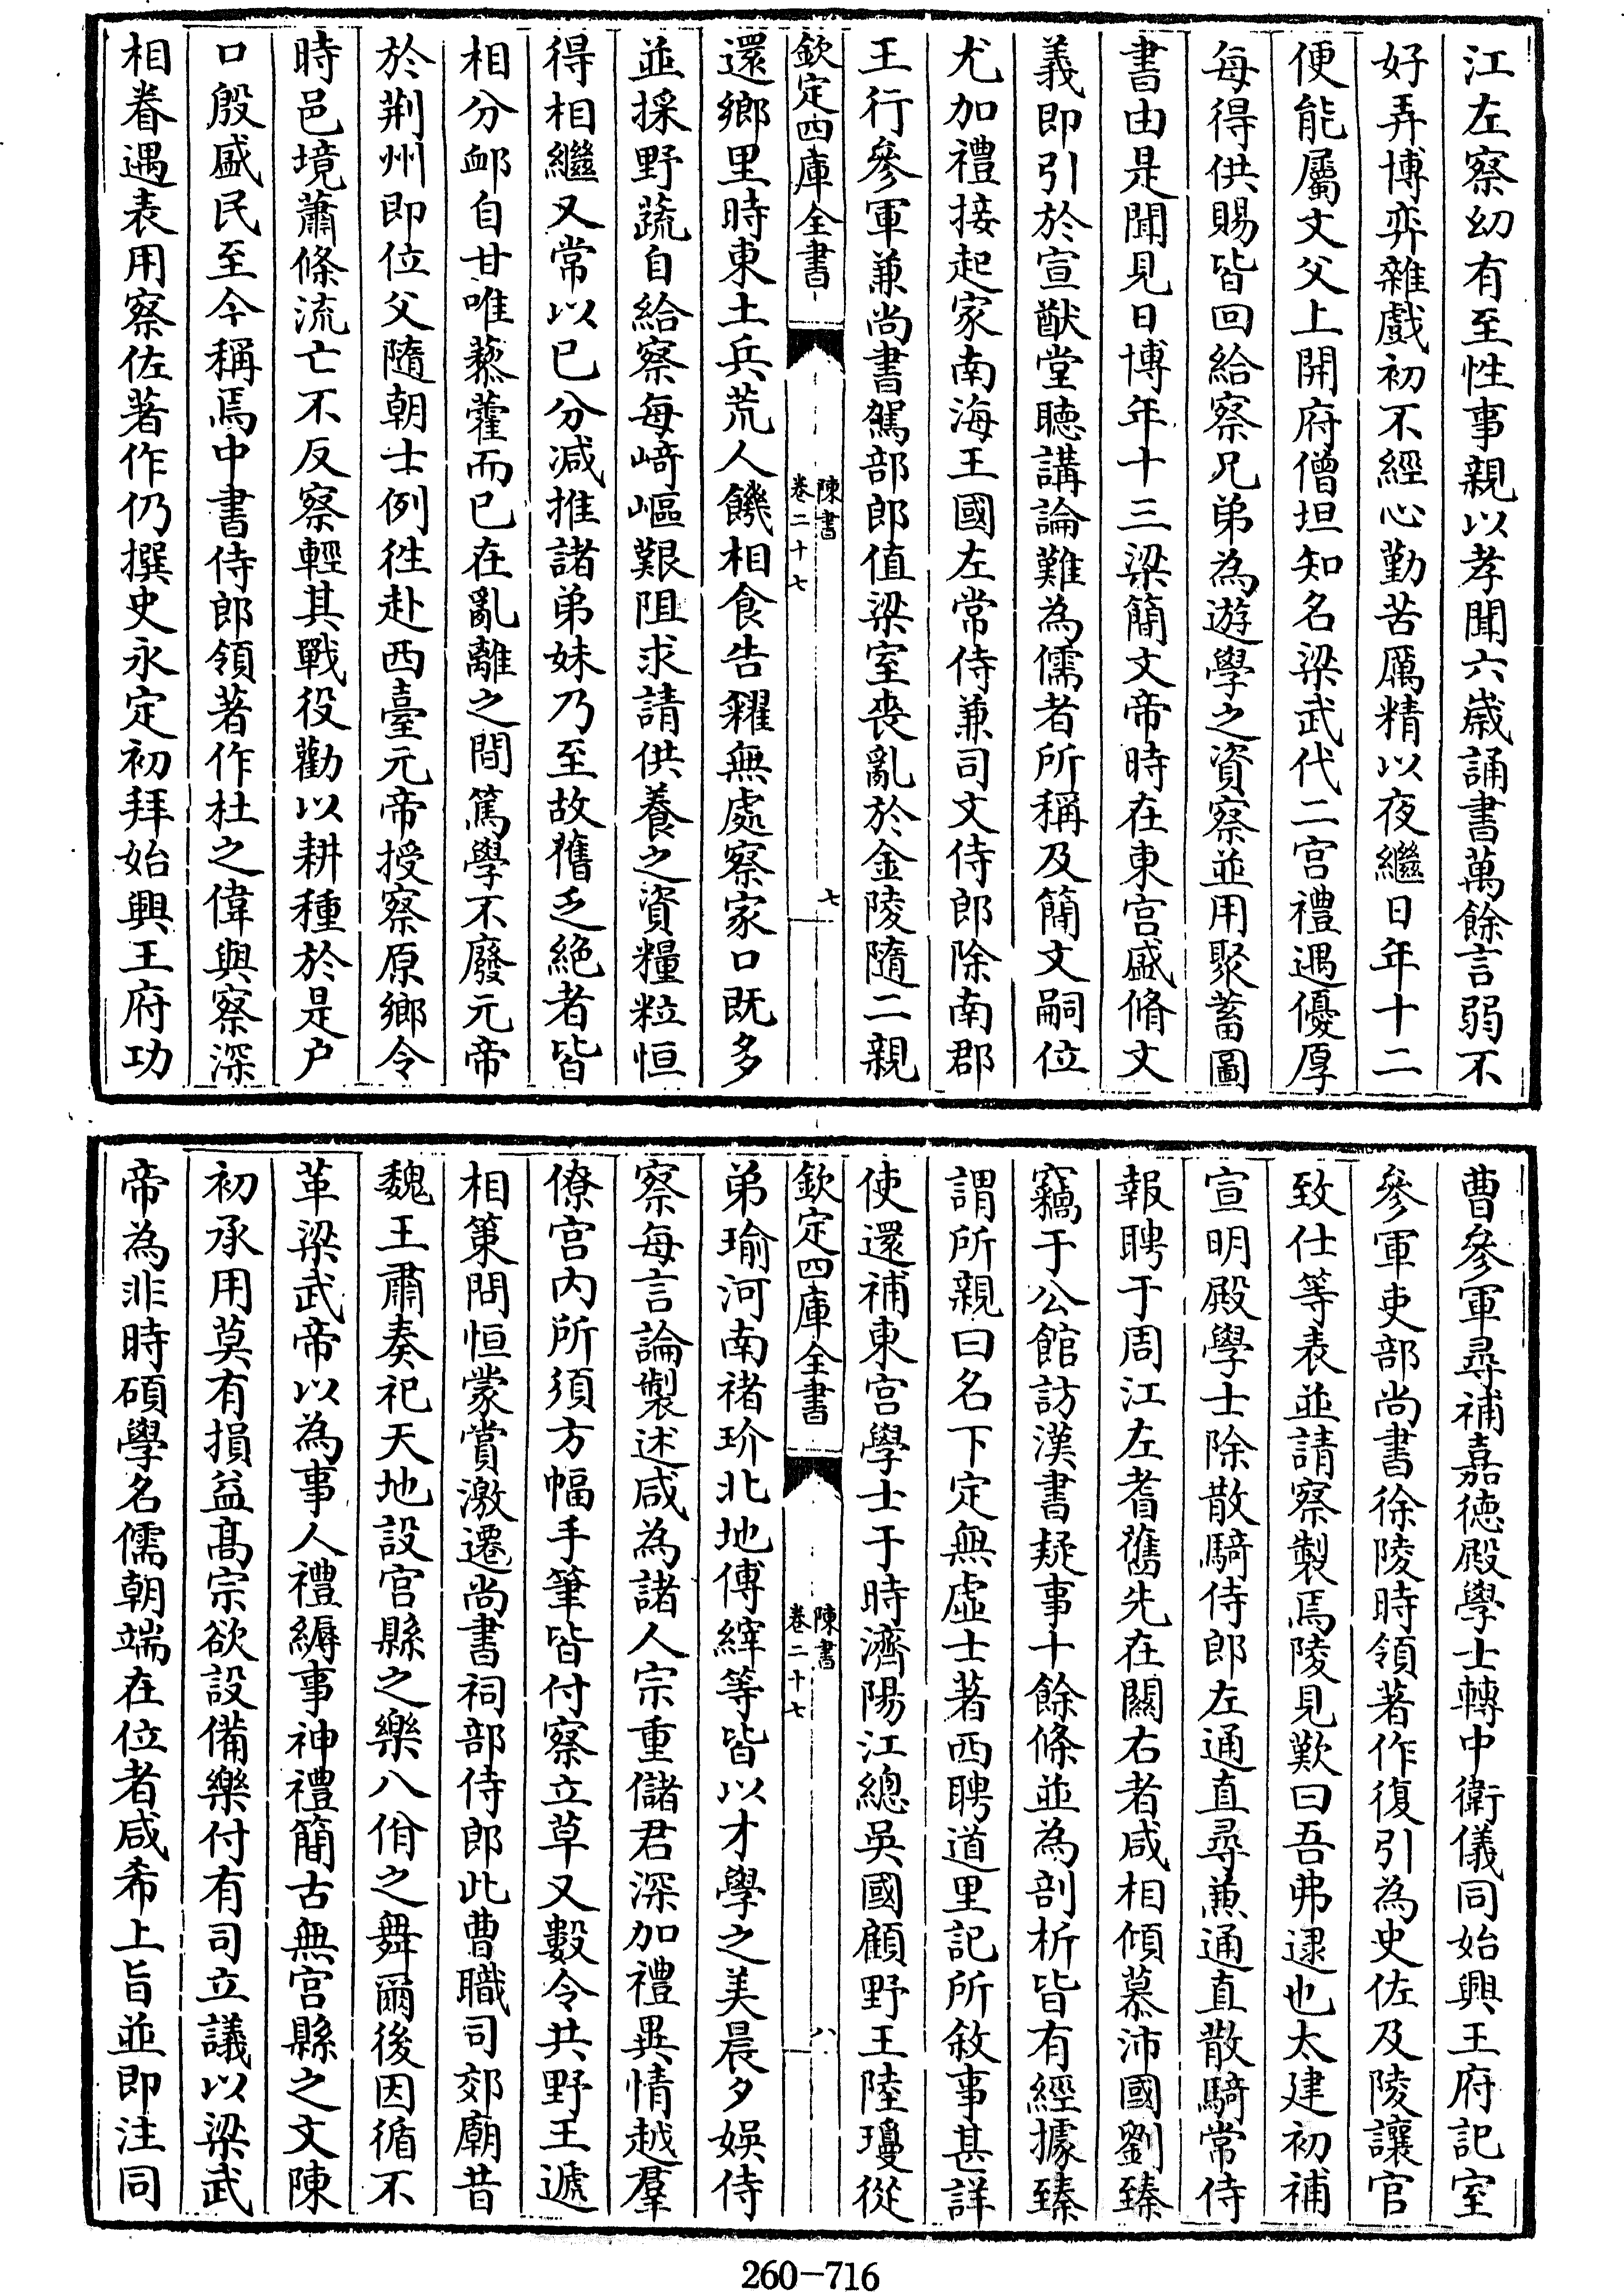 江左察幼有至性事親以孝聞六歲誦書萬餘言弱不
好弄博弈雜戲初不經心勤苦厲精以夜繼日年十二
便能屬文父上開府僧坦知名梁武代二宫禮遇優厚
每得供賜皆回給察兄弟為遊學之資察並用聚蓄圖
書由是聞見日博年十三梁簡文帝時在東宫盛脩文
義即引於宣猷堂聽講論難為儒者所稱及簡文嗣位
尤加禮接起家南海王國左常侍兼司文侍郎除南郡
王行參軍兼尚書駕部郎值梁室喪亂於金陵隨二親
欽定四庫全書
陳書
卷二十七
七
還鄉里時東土兵荒人饑相食告糴無處察家口既多
並採野蔬自給察每崎嶇艱阻求請供養之資糧粒恒
得相繼又常以已分減推諸弟妹乃至故舊乏絶者皆
相分䘏自甘唯藜藿而已在亂離之間篤學不廢元帝
於荆州即位父隨朝士例徃赴西臺元帝授察原鄉令
時邑境蕭條流亡不反察輕其賦役勸以耕種於是户
口殷盛民至今稱焉中書侍郎領著作杜之偉與察深
相眷遇表用察佐著作仍撰史永定初拜始興王府功
曹參軍尋補嘉德殿學士轉中衛儀同始興王府記室
參軍吏部尚書徐陵時領著作復引為史佐及陵讓官
致仕等表並請察製焉陵見歎曰吾弗逮也太建初補
宣明殿學士除散騎侍郎左通直尋兼通直散騎常侍
報聘于周江左耆舊先在關右者咸相傾慕沛國劉臻
竊于公館訪漢書疑事十餘條並為剖析皆有經據臻
謂所親曰名下定無虛士著西聘道里記所敘事甚詳
使還補東宫學士于時濟陽江總吳國顧野王陸瓊從
欽定四庫全書
陳書
卷二十七
八
弟瑜河南褚玠北地傅縡等皆以才學之美晨夕娛侍
察每言論製述咸為諸人宗重儲君深加禮異情越羣
僚宫内所須方幅手筆皆付察立草又數令共野王遞
相策問恒蒙賞激遷尚書祠部侍郎此曹職司郊廟昔
魏王肅奏祀天地設宫縣之樂八佾之舞爾後因循不
革梁武帝以為事人禮縟事神禮簡古無宫縣之文陳
初承用莫有損益髙宗欲設備樂付有司立議以梁武
帝為非時碩學名儒朝端在位者咸希上旨並即注同
260-716